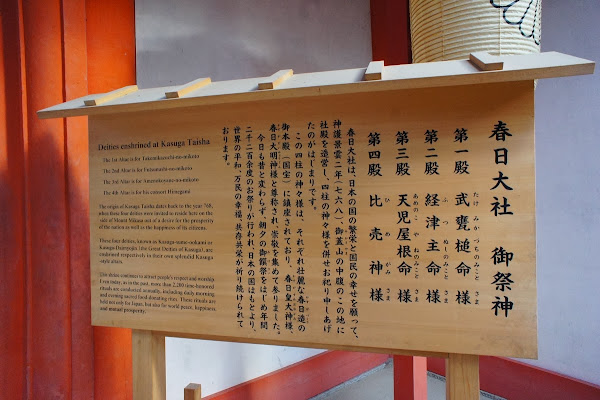 春日大社 御祭神
第一殿 武甕槌命様
たけみかつちのみことさま
第二殿 経津主命様
ふつぬしのみことさま
第三殿 天児屋根命様
あめのこやねのみことさま
第四殿 比売神様
ひめがみさま
春日大社は、日本の国の繁栄と国民の幸せを願って、
神護景雲二年(七六八)御蓋山の中腹のこの地に
社殿を造営し、四柱の神々様を併せお祀り申しあげ
たのがはじまりです。
この四柱の神々様は、それぞれ壮麗な春日造の
御本殿(国宝)に鎮座されており、春日皇大神様、
春日大明神様と尊称され、崇敬を集めて参りました。
今日も昔と変わらず、朝夕の御饌祭をはじめ年間
二千二百余度のお祭りが行われ、日本の国はもとより、
世界の平和、万民の幸福、共存共栄が祈り続けられて
おります。
Deities enshrined at Kasuga Taisha
The 1st Altar is for Takemikazuchi-no-mikoto
The 2nd Altar is for Futsunushi-no-mikoto
The 3rd Altar is for Amenokoyane-no-mikoto
The 4th Altar is for his consort Himegami
The origin of Kasuga Taisha dates back to the year 768,
when these four deities were invited to reside here on the
side of Mount Mikasa out of a desire for the prosperity
of the nation as well as the happiness of its citizens.
These four deities, known as Kasuga-sume-ookami or
Kasuga-Daimyojin (the Great Deities of Kasuga), are
enshrined respectively in their own splendid Kasuga
style altars.
The deities continue to attract people's respect and worship.
Even today, as in the past, more than 2,200 time-honored
rituals are conducted annually, including daily morning
and evening sacred food donating rites. These rituals are
held not only for Japan, but also for world peace, happiness,
and mutual prosperity.